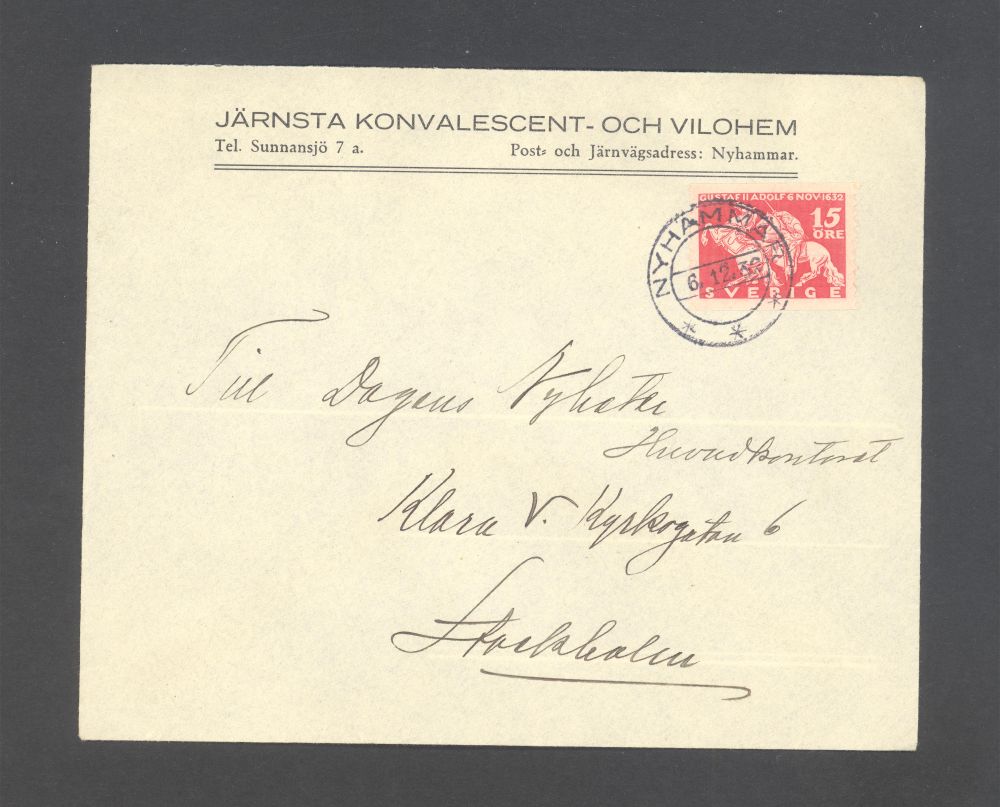 JÄRNSTA KONVALESCENT- OCH VILOHEM
Tel. Sunnansjö 7 a. Post- och Järnvägsadress: Nyhammar.
GUSTAF II ADOLF 6 NOV·1632
15
ÖRE
SVERIGE
NYHAMMAR
6.12.32
Till Dagens Nyheter
Huvudkontoret
Klara V. Kyrkogatan 6
Stockholm